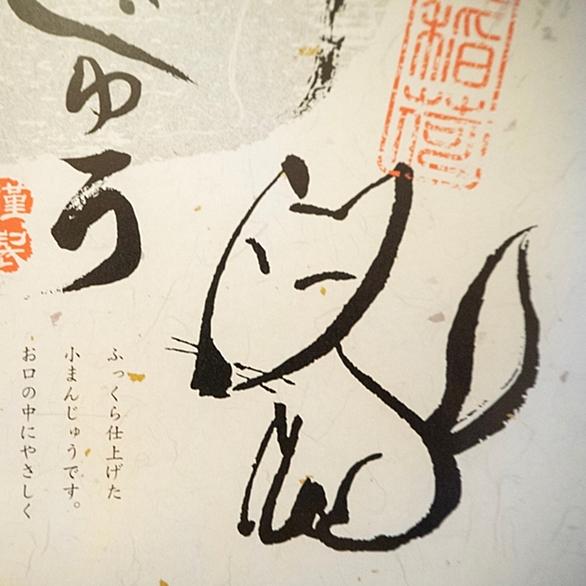 じゅう
稲荷
謹製
ふっくら仕上げた
小まんじゅうです。
お口の中にやさしく